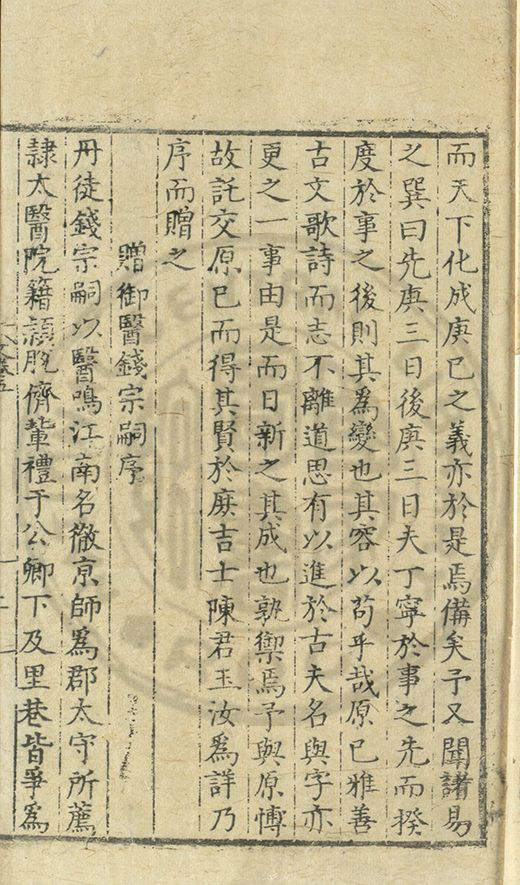 而天下化成庚巳之義亦於是焉備矣予又聞諸易
之巽曰先庚三日後庚三日夫丁寧於事之先而揆
度於事之後則其為變也其容以苟乎哉原已雅善
古文歌詩而志不離道思有以進於古夫名與字亦
更之一事由是而日新之其成也孰禦焉予與原博
故託交原已而得其賢於庶吉士陳君玉汝為詳乃
序而贈之
贈御醫錢宗嗣序
丹徒錢宗嗣以醫鳴江南名徹京師爲郡太守所薦
隸太醫院籍穎脫儕輩禮于公卿下及里巷皆爭爲